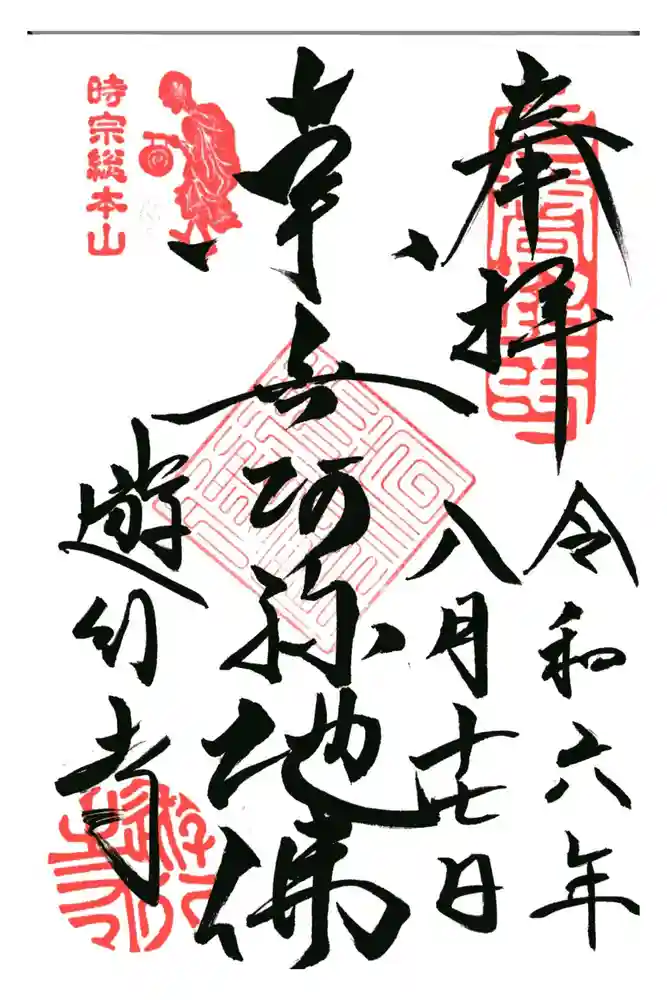 奉拝
令和六年
八月十七日
南無阿弥陀佛
時宗総本山
遊行寺